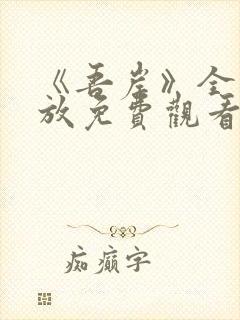 《吾岸》全
放免費觀看
痴癲字